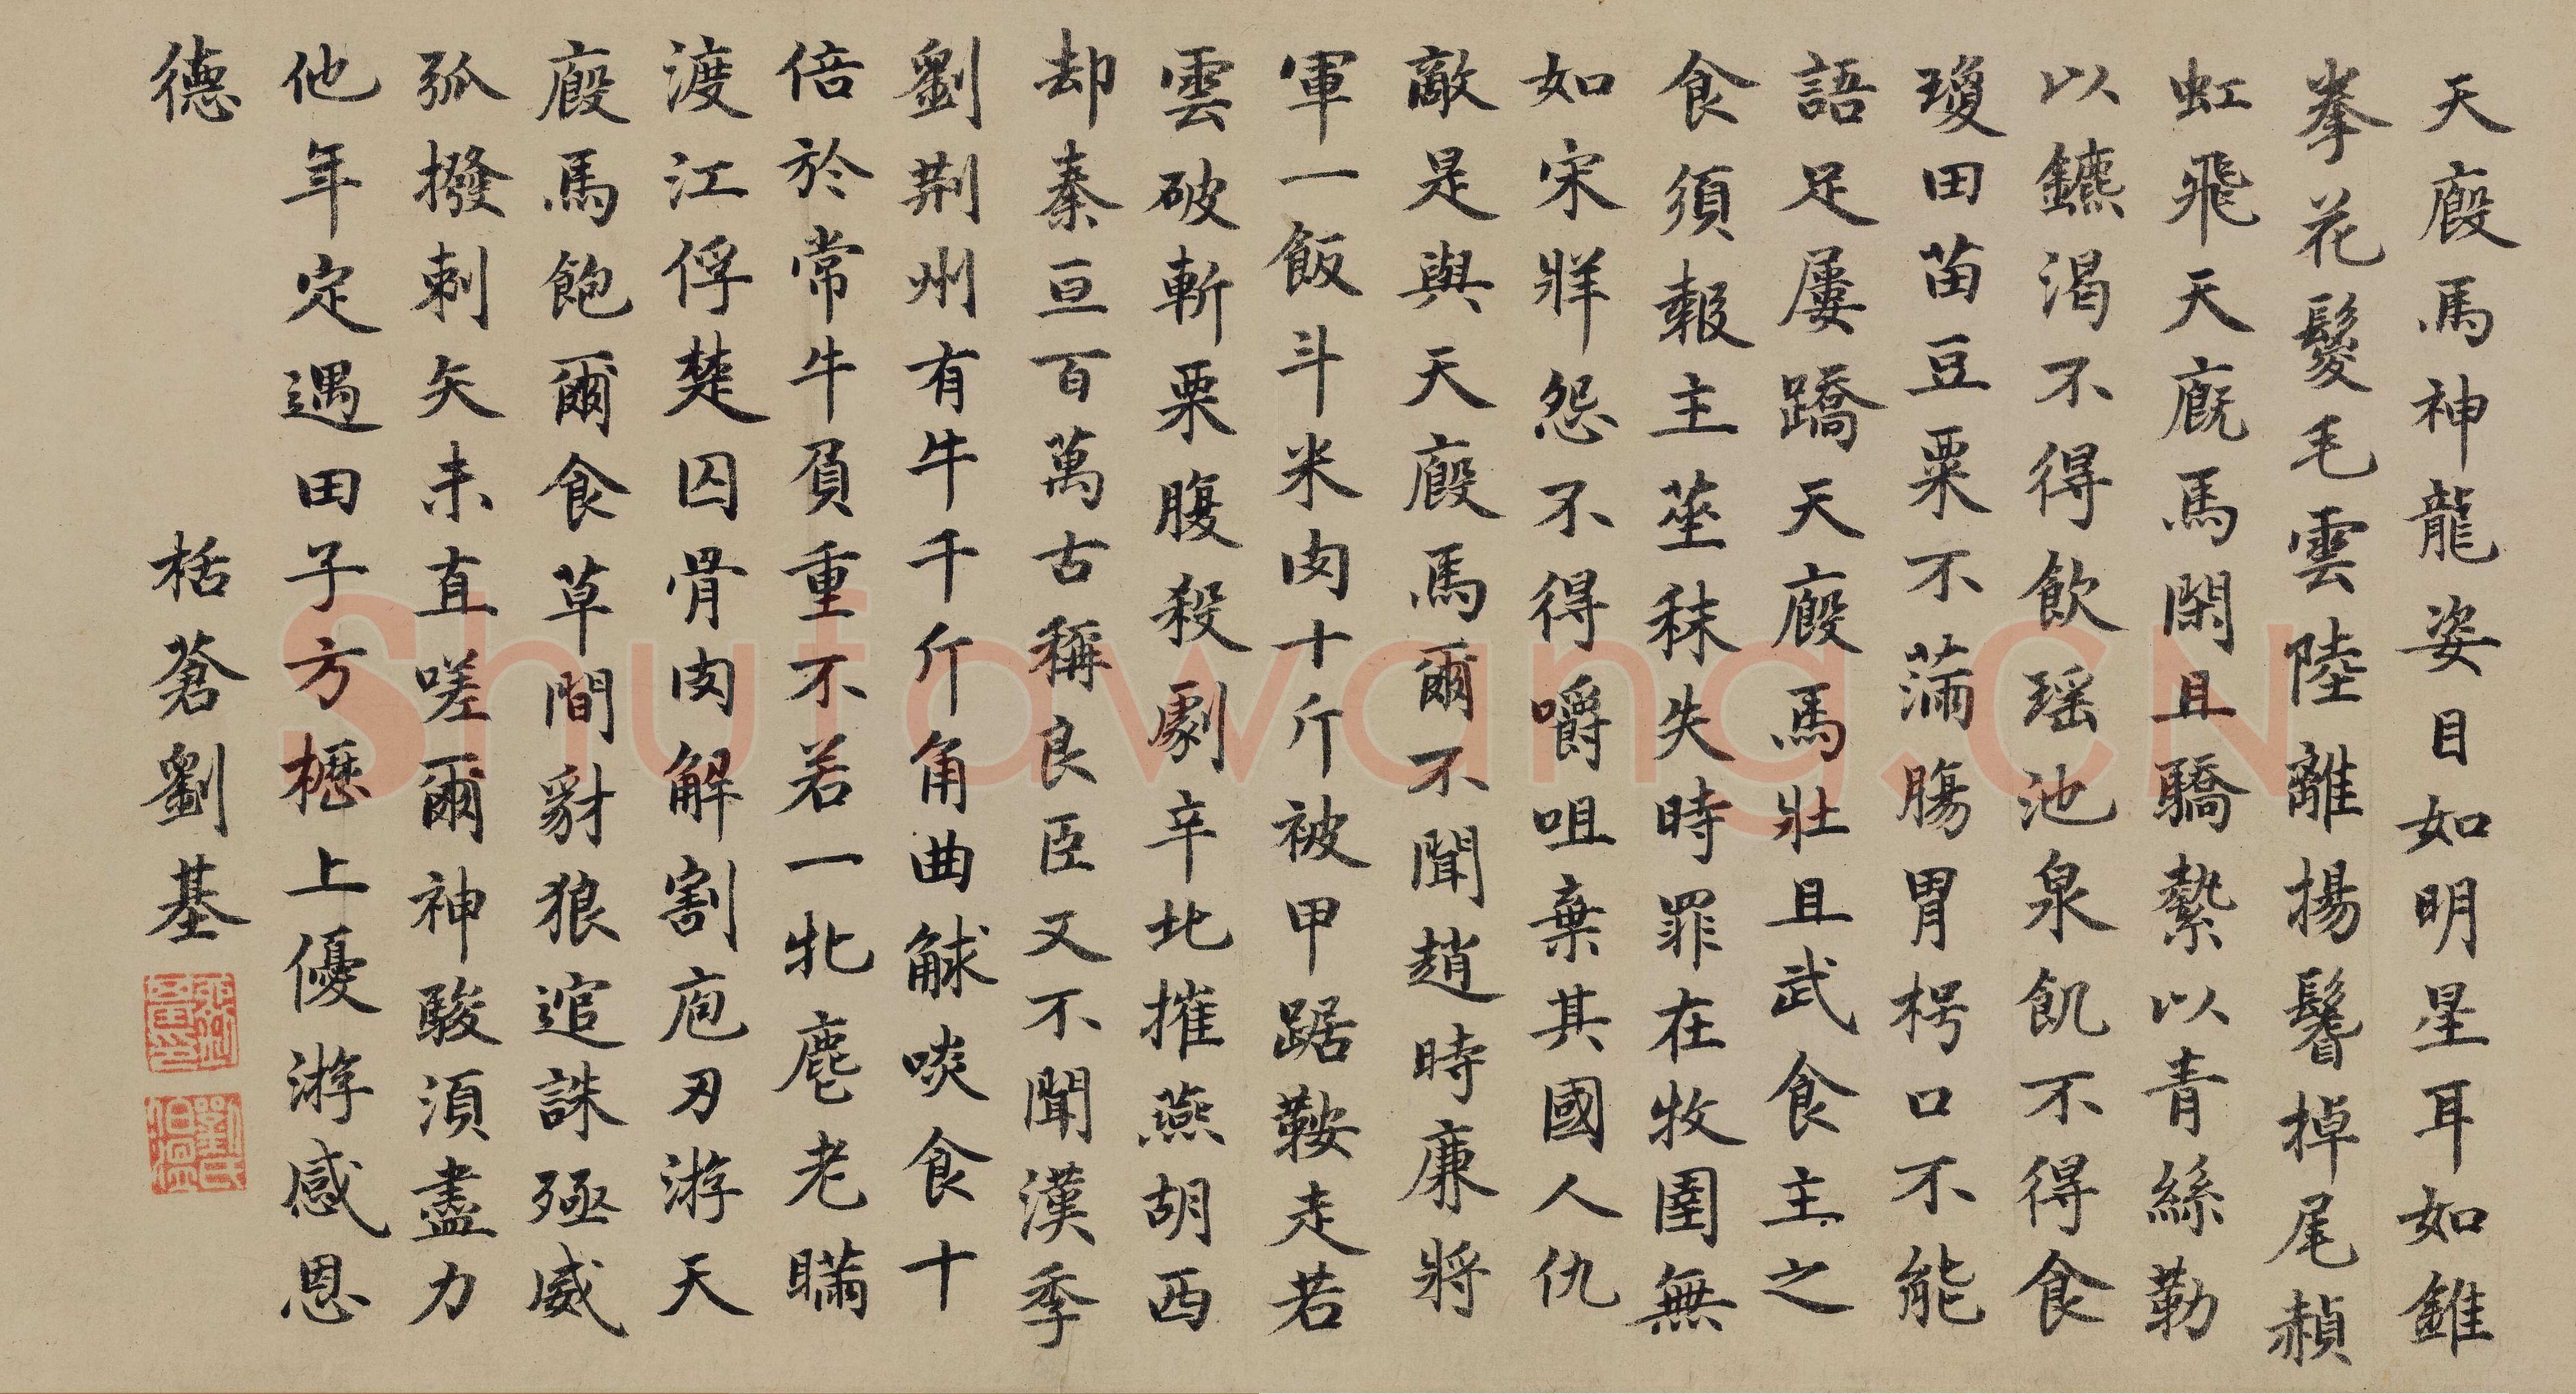 天廄馬神龍姿目如明星耳如錐
拳花鬉毛雲陸離揚鬐掉尾赬
虹飛天廐馬閑且驕縶以青絲勒
以鑣渴不得飲瑶池泉飢不得食
瓊田苗豆粟不滿腸胃枵口不能
語足屢蹻天廄馬壯且武食主之
食須報主莝秣失時罪在牧圉無
如宋牂怨不得嚼咀棄其國人仇
敵是與天廄馬爾不聞趙時廉將
軍一飯斗米肉十斤被甲踞鞍走若
雲破斬栗腹殺劇辛北摧燕胡西
却秦亘百萬古稱良臣又不聞漢季
劉荆州有牛千斤角曲觩啖食十
倍於常牛負重不若一牝麀老瞞
渡江俘楚囚骨肉解割庖刃游天
廄馬飽爾食草間豺狼追誅殛威
弧撥剌矢未直嗟爾神駿湏盡力
他年定遇田子方櫪上優游感恩
德
栝蒼劉基
Shufawang.CN